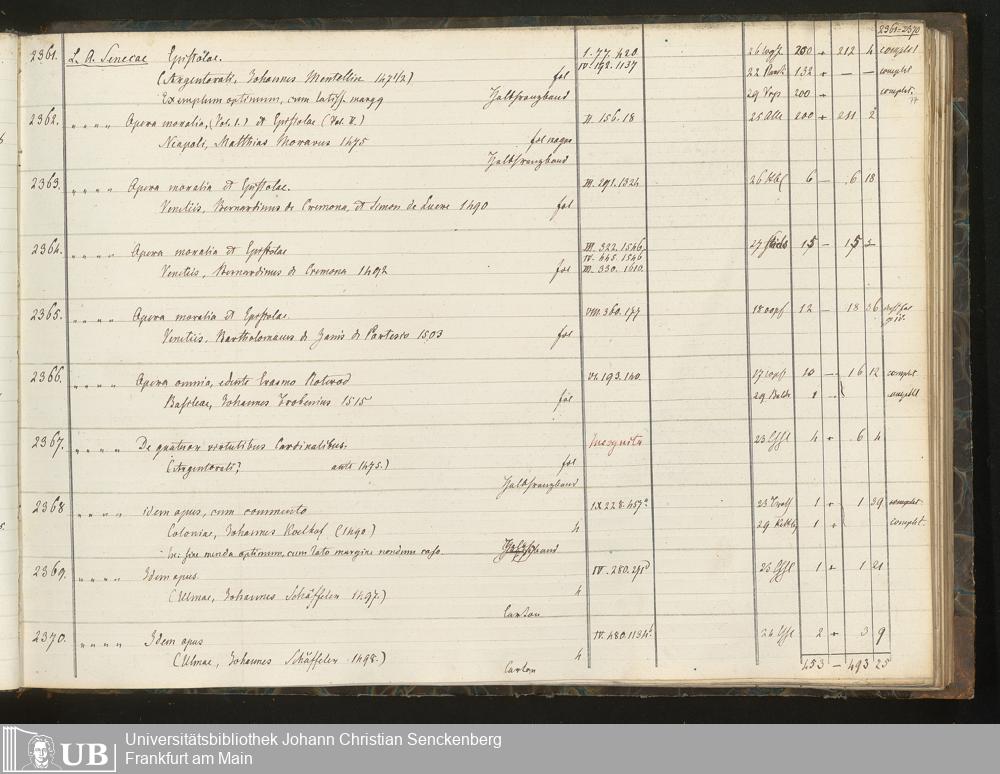 2361-2370
2361. L. A. Senecae Epistolae. I. 77. 420 200 212 4 complet
(Argentorati, Johannes Mentellin 1471/2) fol IV. 192. 1137 132 — — complet
Exemplum optimum, cum latiss. margg Halbfranzband 200 complet.
2362. " " " " Opera moralia, (Vol. I.) et Epistolae (Vol. II.) II. 156. 18 200 211 2
Neapoli, Matthias Moravus 1475 fol magno
Halbfranzband
2363. " " " " Opera moralia et Epistolae. III. 291. 1324 6 — 6 18
Venetiis, Bernardinus de Cremona, et Simon de Luere 1490 fol
2364. " " " " Opera moralia et Epistolae III. 322. 1546. 15 — 15 2
IV. 445. 1546
Venetiis, Bernardinus de Cremona 1492 fol III. 330. 1610.
2365. " " " " Opera moralia et Epistolae. VIII. 360. 177 12 — 18 36
Venetiis. Bartholomaeus de Zanis de Portesio 1503 fol
2366. " " " " Opera omnia, edente Erasmo Roterod VI. 193. 140 10 — 16 12 complet
Basileae, Johannes Frobenius 1515 fol
2367. " " " " De quatuor virtutibus Cardinalibus. Incognita 4 6 4
(Argentorati? ante 1475.) fol
Halbfranzband
2368 " " " " idem opus, cum commento IX 228. 457 1 1 39 complet
Coloniae, Johannes Koelhof (1490) 4 1 complet.
optimum, cum lato margine nondum caeso
2369. " " " " Idem opus. IV. 280. 1 1 21
(Ulmae, Johannes Schäffeler 1497.) 4
Carton
2370. " " " " Idem opus IV. 480. 1134 2 3 9
(Ulmae, Johannes Schäffeler 1498.) 4
Carton 453 — 493 25
Universitätsbibliothek Johann Christian Senckenberg
UB Frankfurt am Main